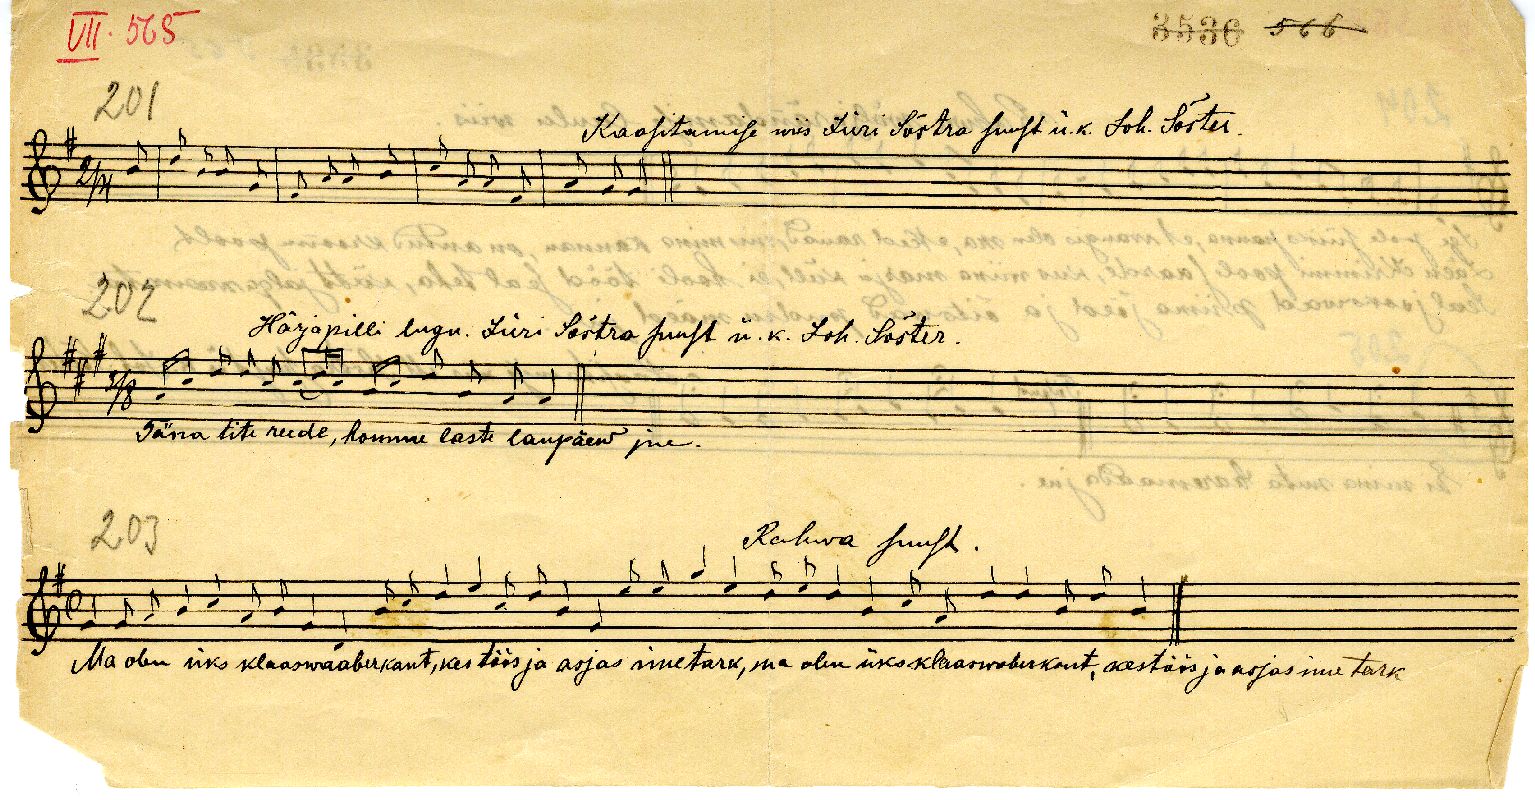 VII. 565
3536 566
201
Kaasitamise wiis Jüri Sõstra suust ü. k. Joh. Sõster.
2/4
202
Härjapilli lugu. Jüri Sõstra suust ü. k. Joh. Sõster.
3/8
Täna tite reede, homme laste laupäew jne.
203
Rahwa suust.
Ma olen üks klaaswaaberkant, kes töös ja asjas imetark, ma olen üks klaaswaberkant, kes töös ja asjas ime tark